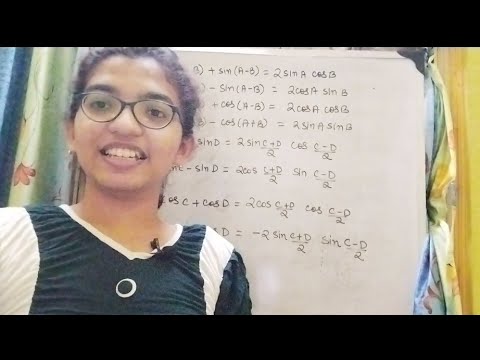 B) + sin(A-B) = 2 sin A cos B
B) - sin(A-B) = 2 cos A sin B
B) + cos(A-B) = 2 cos A cos B
B) - cos(A+B) = 2 sin A sin B
sin D = 2 sin C+D/2 cos C-D/2
sin C - sin D = 2 cos C+D/2 sin C-D/2
cos C + cos D = 2 cos C+D/2 cos C-D/2
D = -2 sin C+D/2 sin C-D/2